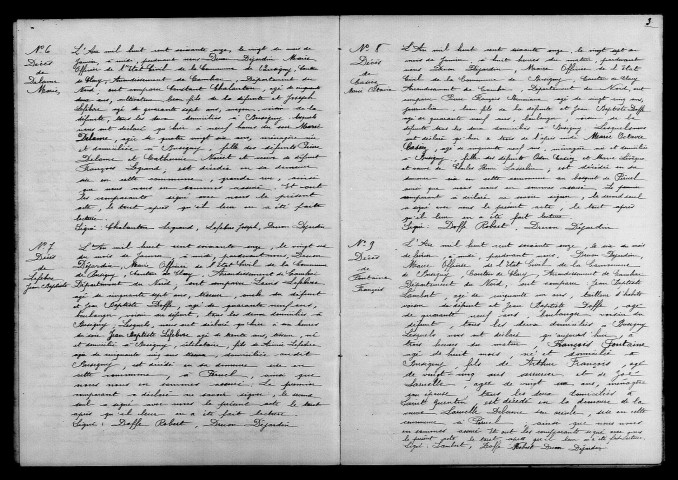 3
N° 6
Décès
de
Delaune
Marie
L'An mil huit cent soixante onze, le vingt du mois de
Janvier, à midi, pardevant nous Druon Déjardin Maire
Officier de l'Etat Civil de la Commune de Busigny, Canton
de Clary, Arrondissement de Cambrai, Département du
Nord, ont comparu Constant Chalanton, âgé de
ans, de la défunte et Joseph
Lefebvre âgé de cinquante sept ans, voisin de la
défunte, tous les deux domiciliés à Busigny lesquels
nous ont déclaré qu'hier à neuf heures du soir Marie
Delaune, âgée de quatre vingt ans, ménagère née
et domiciliée à Busigny, fille des défunts Pierre
Delaune et Catherine et veuve de défunt
François Legrand, est décédée en sa demeure
sise en cette commune, grande rue, ainsi
que nous nous en sommes assuré. Et ont
les comparants signé avec nous le présent
acte, le tout après qu'il leur en a été faite
lecture.
Signé: Chalanton Legrand, Lefebvre Joseph, Druon Déjardin
N° 7
Décès
de
Lefebvre
Jean Baptiste
L'An mil huit cent soixante onze, le vingt
du mois de Janvier à midi, pardevant nous Druon
Déjardin, Maire Officier de l'Etat Civil de la Commune
de Busigny, Canton de Clary, Arrondissement de Cambrai
Département du Nord, ont comparu Louis Lefebvre
âgé de cinquante sept ans, du défunt
et Jean Baptiste Daffe, âgé de quarante neuf ans,
boulanger, voisin du défunt, tous les deux domiciliés à
Busigny, lesquels nous ont déclaré qu'hier à heures
du soir Jean Baptiste Lefebvre, âgé de trente ans, né
et domicilié à Busigny, célibataire, fils de Louis Lefebvre
âgé de cinquante domicilié audit
Busigny, est décédé en sa demeure sise en
cette commune, ainsi que
nous nous en sommes assuré. Le premier
comparant a déclaré ne savoir signer, le second
seul a signé avec nous le présent acte le tout
après qu'il leur en a été fait lecture.
Signé: Daffe Robert, Druon Déjardin
N° 8
Décès
de
L'An mil huit cent soixante onze, le vingt sept du
mois de Janvier à huit heures du matin, pardevant
nous Druon Déjardin, Maire Officier de l'Etat
Civil de la Commune de Busigny, Canton de Clary
Arrondissement de Cambrai, Département du Nord, ont
comparu Pierre François âgé de vingt cinq ans,
journalier, de la défunte et Jean Baptiste Daffe
âgé de quarante neuf ans, boulanger, voisin de la
défunte tous les deux domiciliés à Busigny Lesquels nous
ont déclaré qu'hier à trois heures du soir Marie Octavie
âgée de cinquante neuf ans, ménagère née et domiciliée
à Busigny, fille des défunts et Marie
et veuve de Charles Henri est décédée en sa
demeure sise en cette commune
ainsi que nous nous en sommes assuré. Le premier
comparant a déclaré ne savoir signer, le second seul
a signé avec nous le présent acte, le tout après
qu'il leur en a été fait lecture.
Signé: Daffe Robert, Druon Déjardin
N° 9
Décès
de
Fontaine
François
L'An mil huit cent soixante onze, le six du mois
de février à midi, pardevant nous, Druon Déjardin,
Maire Officier de l'Etat Civil de la Commune
de Busigny, Canton de Clary, Arrondissement de Cambrai
Département du Nord, ont comparu Jean Baptiste
Lambert, âgé de cinquante six ans, tailleur d'habits
voisin du défunt et Jean Baptiste Daffe, âgé
de quarante neuf ans, boulanger voisin du
défunt, tous les deux domiciliés à Busigny
Lesquels nous ont déclaré qu'aujourd'hui, à
trois heures du matin François Fontaine
âgé de huit mois né et domicilié à
Busigny fils de Arthur François, âgé
de vingt cinq ans et de
âgée de vingt six ans, ménagère
son épouse, tous les deux domiciliés à
Saint Quentin, est décédé en la demeure de la
Delaune son aïeule, sise en cette
commune ainsi que nous nous
en sommes assuré. Et ont les comparants signé avec nous
le présent acte, le tout après qu'il leur en a été fait lecture.
Signé: Lambert, Daffe Robert Druon Déjardin